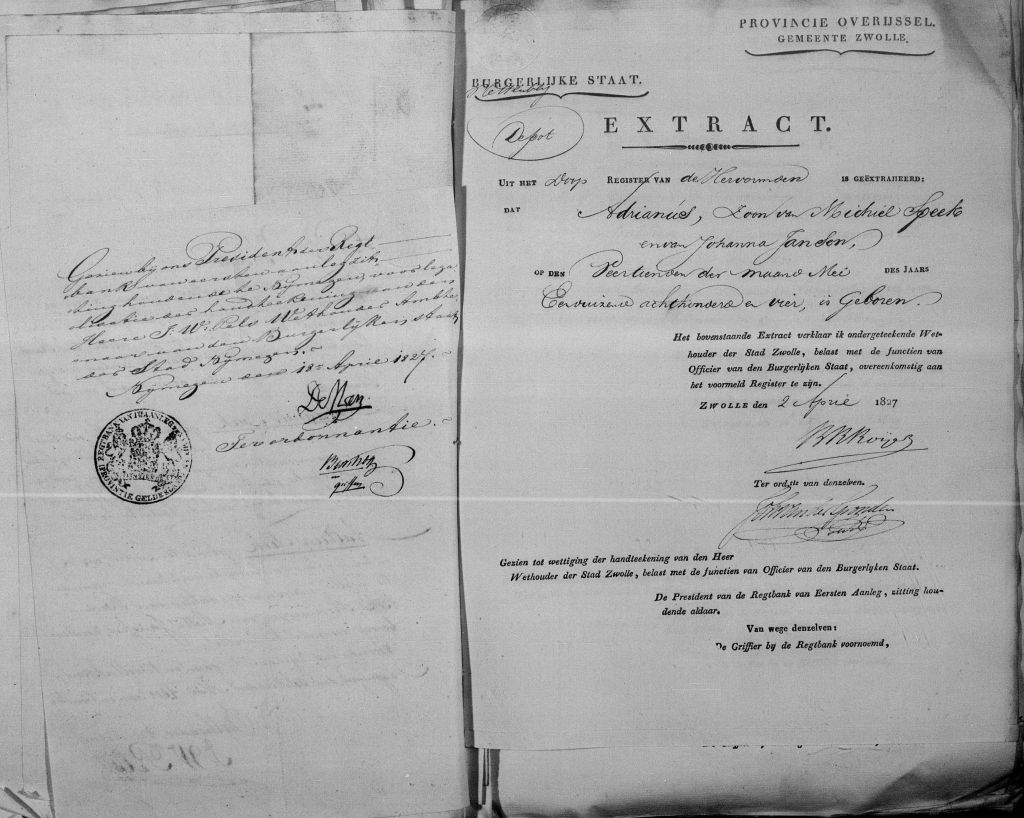 Gezien bij ons President der Regt
bank van eersten aanleg zit
ting houdende te Nymegen, voor lega
lisatie der handteekening van den
Heere J. W. Pels Wethouder Ambte
naar van den Burgerlyken staat
der Stad Nymegen.
Nymegen den 18n April 1827.
De Man
Ter ordonnantie.
griffier
REGTBANK VAN 1STE AANLEG
PROVINTIE GELDERLAND
PROVINCIE OVERIJSSEL.
GEMEENTE ZWOLLE.
BURGERLIJKE STAAT.
Depot
EXTRACT.
UIT HET Doop REGISTER VAN de Hervormden IS GEËXTRAHEERD:
DAT Adrianus, Zoon van Michiel Speek
en van Johanna Jansen,
OP DEN Veertienden der maand Mei DES JAARS
Eenduizend achthonderd en vier, is Geboren.
Het bovenstaande Extract verklaar ik ondergeteekende Wet-
houder der Stad Zwolle, belast met de functien van
Officier van den Burgerlijken Staat, overeenkomstig aan
het voormeld Register te zijn.
ZWOLLE den 2 April 1827
Ter ordztie van denzelven.
Gezien tot wettiging der handteekening van den Heer
Wethouder der Stad Zwolle, belast met de functien van Officier van den Burgerlyken Staat.
De President van de Regtbank van Eersten Aanleg, zitting hou-
dende aldaar.
Van wege denzelven:
De Griffier by de Regtbank voornoemd,